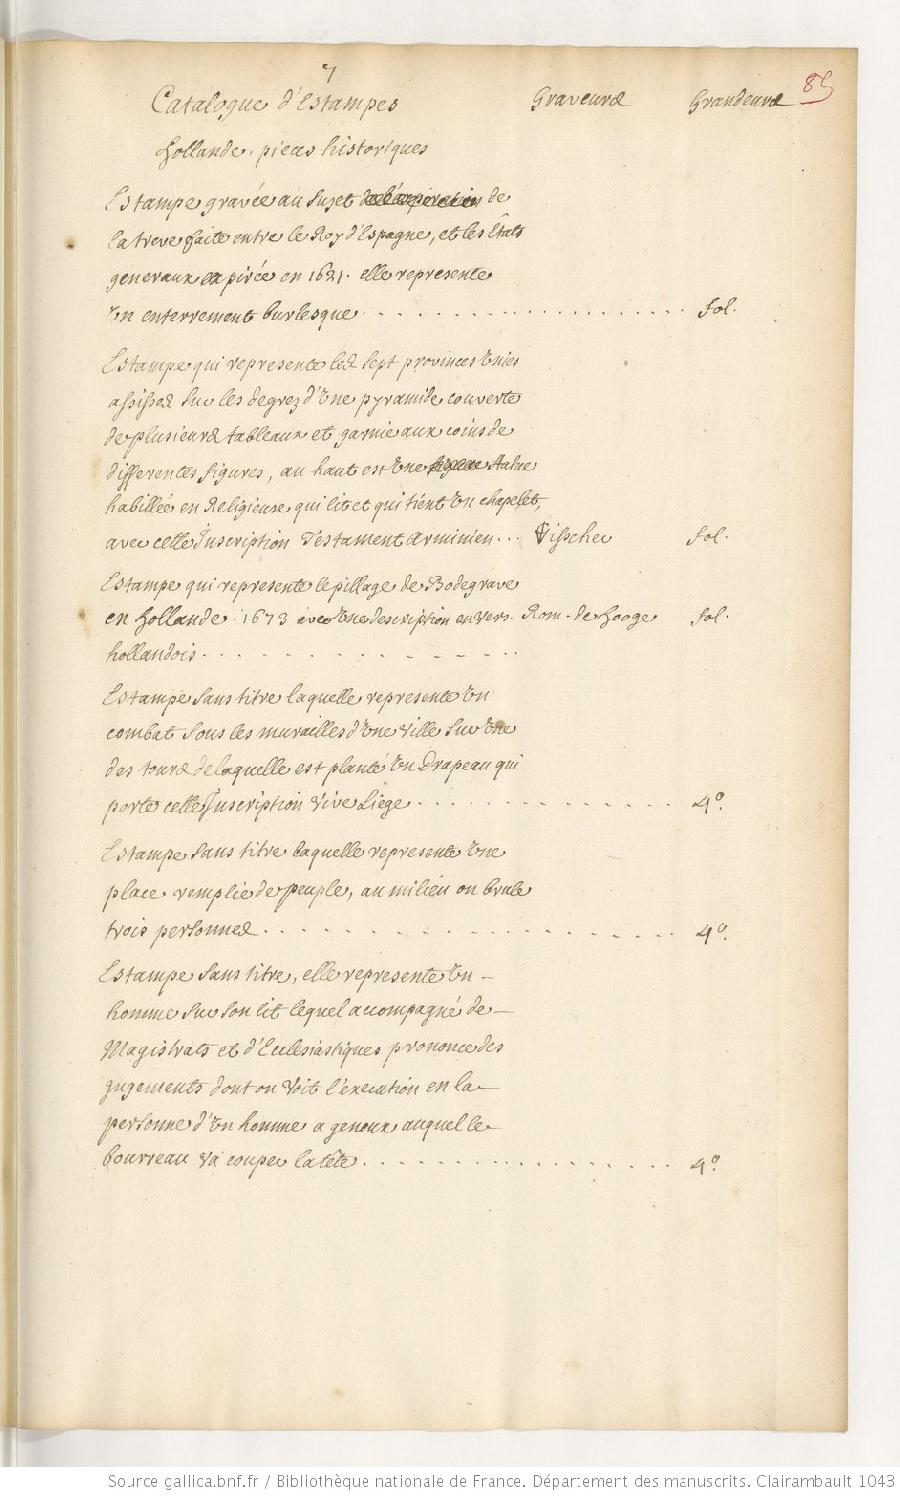 7
85
Catalogue d'Estampes Graveurs Grandeurs
Hollande. pieces historiques
Estampe gravée au sujet de l'expiration de
la treve faite entre le Roy d'Espagne, et les Etats
generaux expirée en 1621. elle represente
Un enterrement burlesque . . . . . . . . . . . . . . . . . . fol.
Estampe qui represente les sept provinces Unies
assises sur les degrez d'Une pyramide couverte
de plusieurs tableaux et garnie aux coins de
differentes figures, au haut est Une figure statue
habillée en Religieuse qui lit et qui tient Un chapelet,
avec cette Inscription Testament Arminien... Visscher fol.
Estampe qui represente le pillage de Bodegrave
en Hollande 1673 avec Une description en vers Rom. de Hooge fol.
hollandois . . . . . . . . . . .
Estampe sans titre laquelle represente Un
combat sous les murailles d'Une Ville sur Une
des tours de laquelle est planté Un Drapeau qui
porte cette Inscription Vive Liege . . . . . . . . . . . . . 4º.
Estampe sans titre laquelle represente Une
place remplie de peuple, au milieu on brule
trois personnes . . . . . . . . . . . . . . . . . 4º.
Estampe sans titre, elle represente Un
homme sur son lit lequel accompagné de
Magistrats et d'Ecclesiastiques prononce des
jugements dont on Voit l'execution en la
personne d'Un homme a genoux auquel le
bourreau Va couper la tête . . . . . . . . . . . . . . . 4º.
Source gallica.bnf.fr / Bibliothèque nationale de France. Département des manuscrits. Clairambault 1043